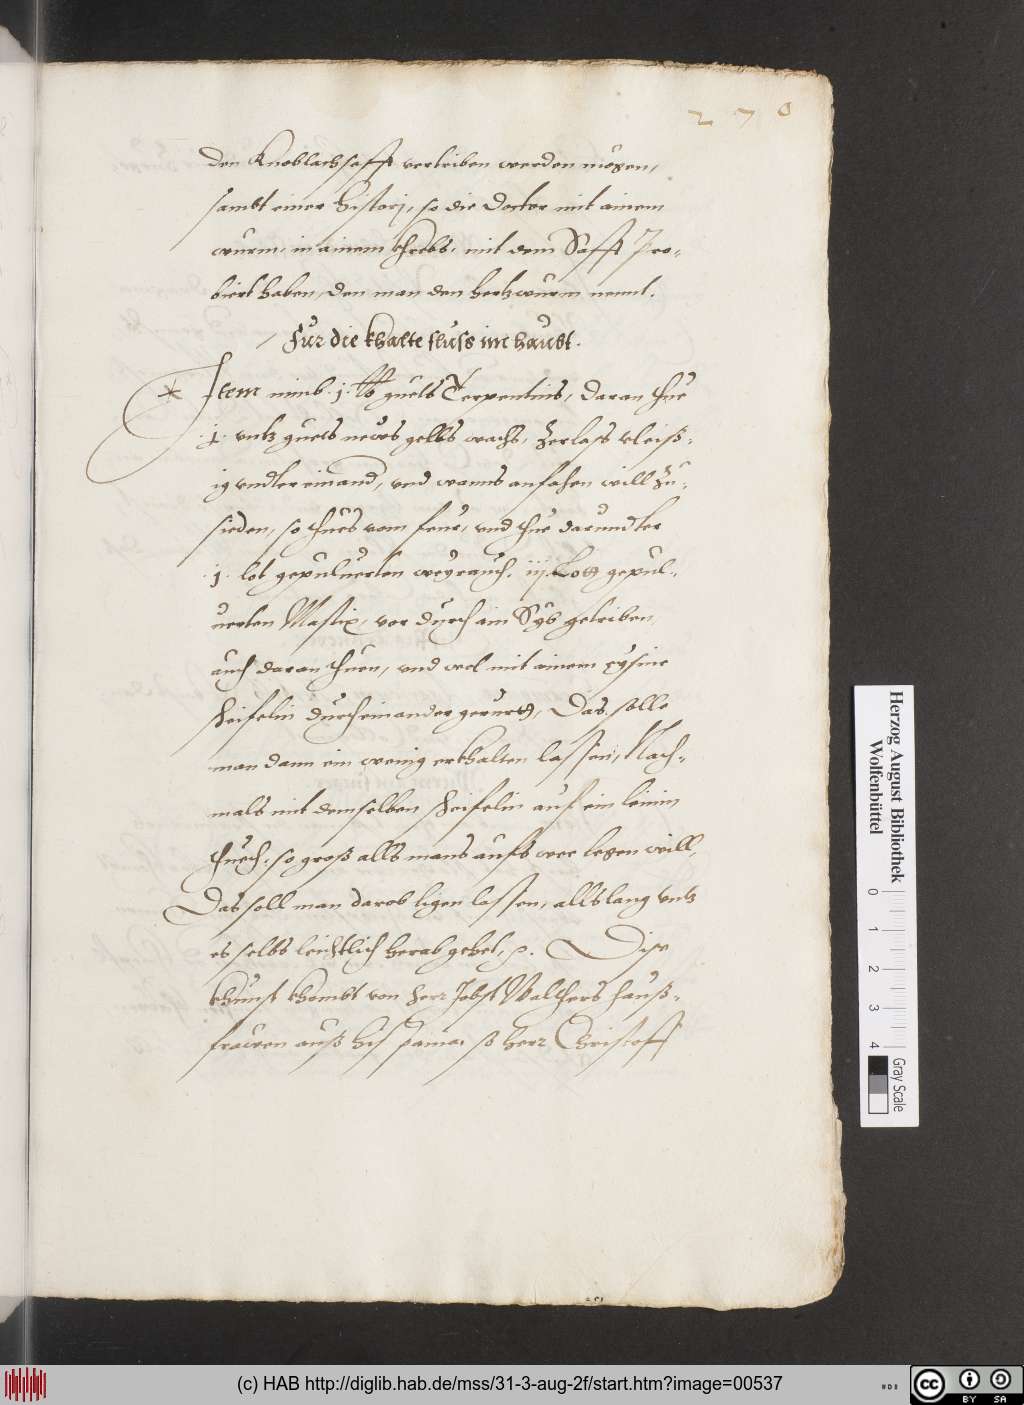 270
den Knoblachsafft vertriben werden mögen,
sambt einer Histori, so die Doctor mit ainem
wurm, in ainem Khrebs, mit dem Safft Pro-
biert haben, den man den hertzwurm nennt.
Für die khalte fluss im haubt.
* Item nimb .j. lb guets Terpentins, daran thue
.j. untz guets news gelbs wachs, Zerlass vleiß-
ig undter einand, und wanns anfahen will zu-
sieden, so thues vom feur, und thue darundter
.j. lot gepuluerten weyrauch. iij. Lott gepul-
uerten Mastix, vor durch ain Syb getriben,
auch daran thuen, und wol mit ainem eysine
durcheinander gerurth, Das solle
man dann ein wenig erkhalten lassen, Nach-
mals mit demselben auf ein leinin
thuech, so groß alls mans aufs wee legen will,
Das soll man darob ligen lassen, alls lang untz
es selbs leichtlich herab gehet, p. Dise
khunst khombt von herr Jobst Walthers hauß-
frawen auß so herr Christoff
Herzog August Bibliothek
Wolfenbüttel
0 1 2 3 4
Gray Scale
(c) HAB http://diglib.hab.de/mss/31-3-aug-2f/start.htm?image=00537
HAB
cc BY SA